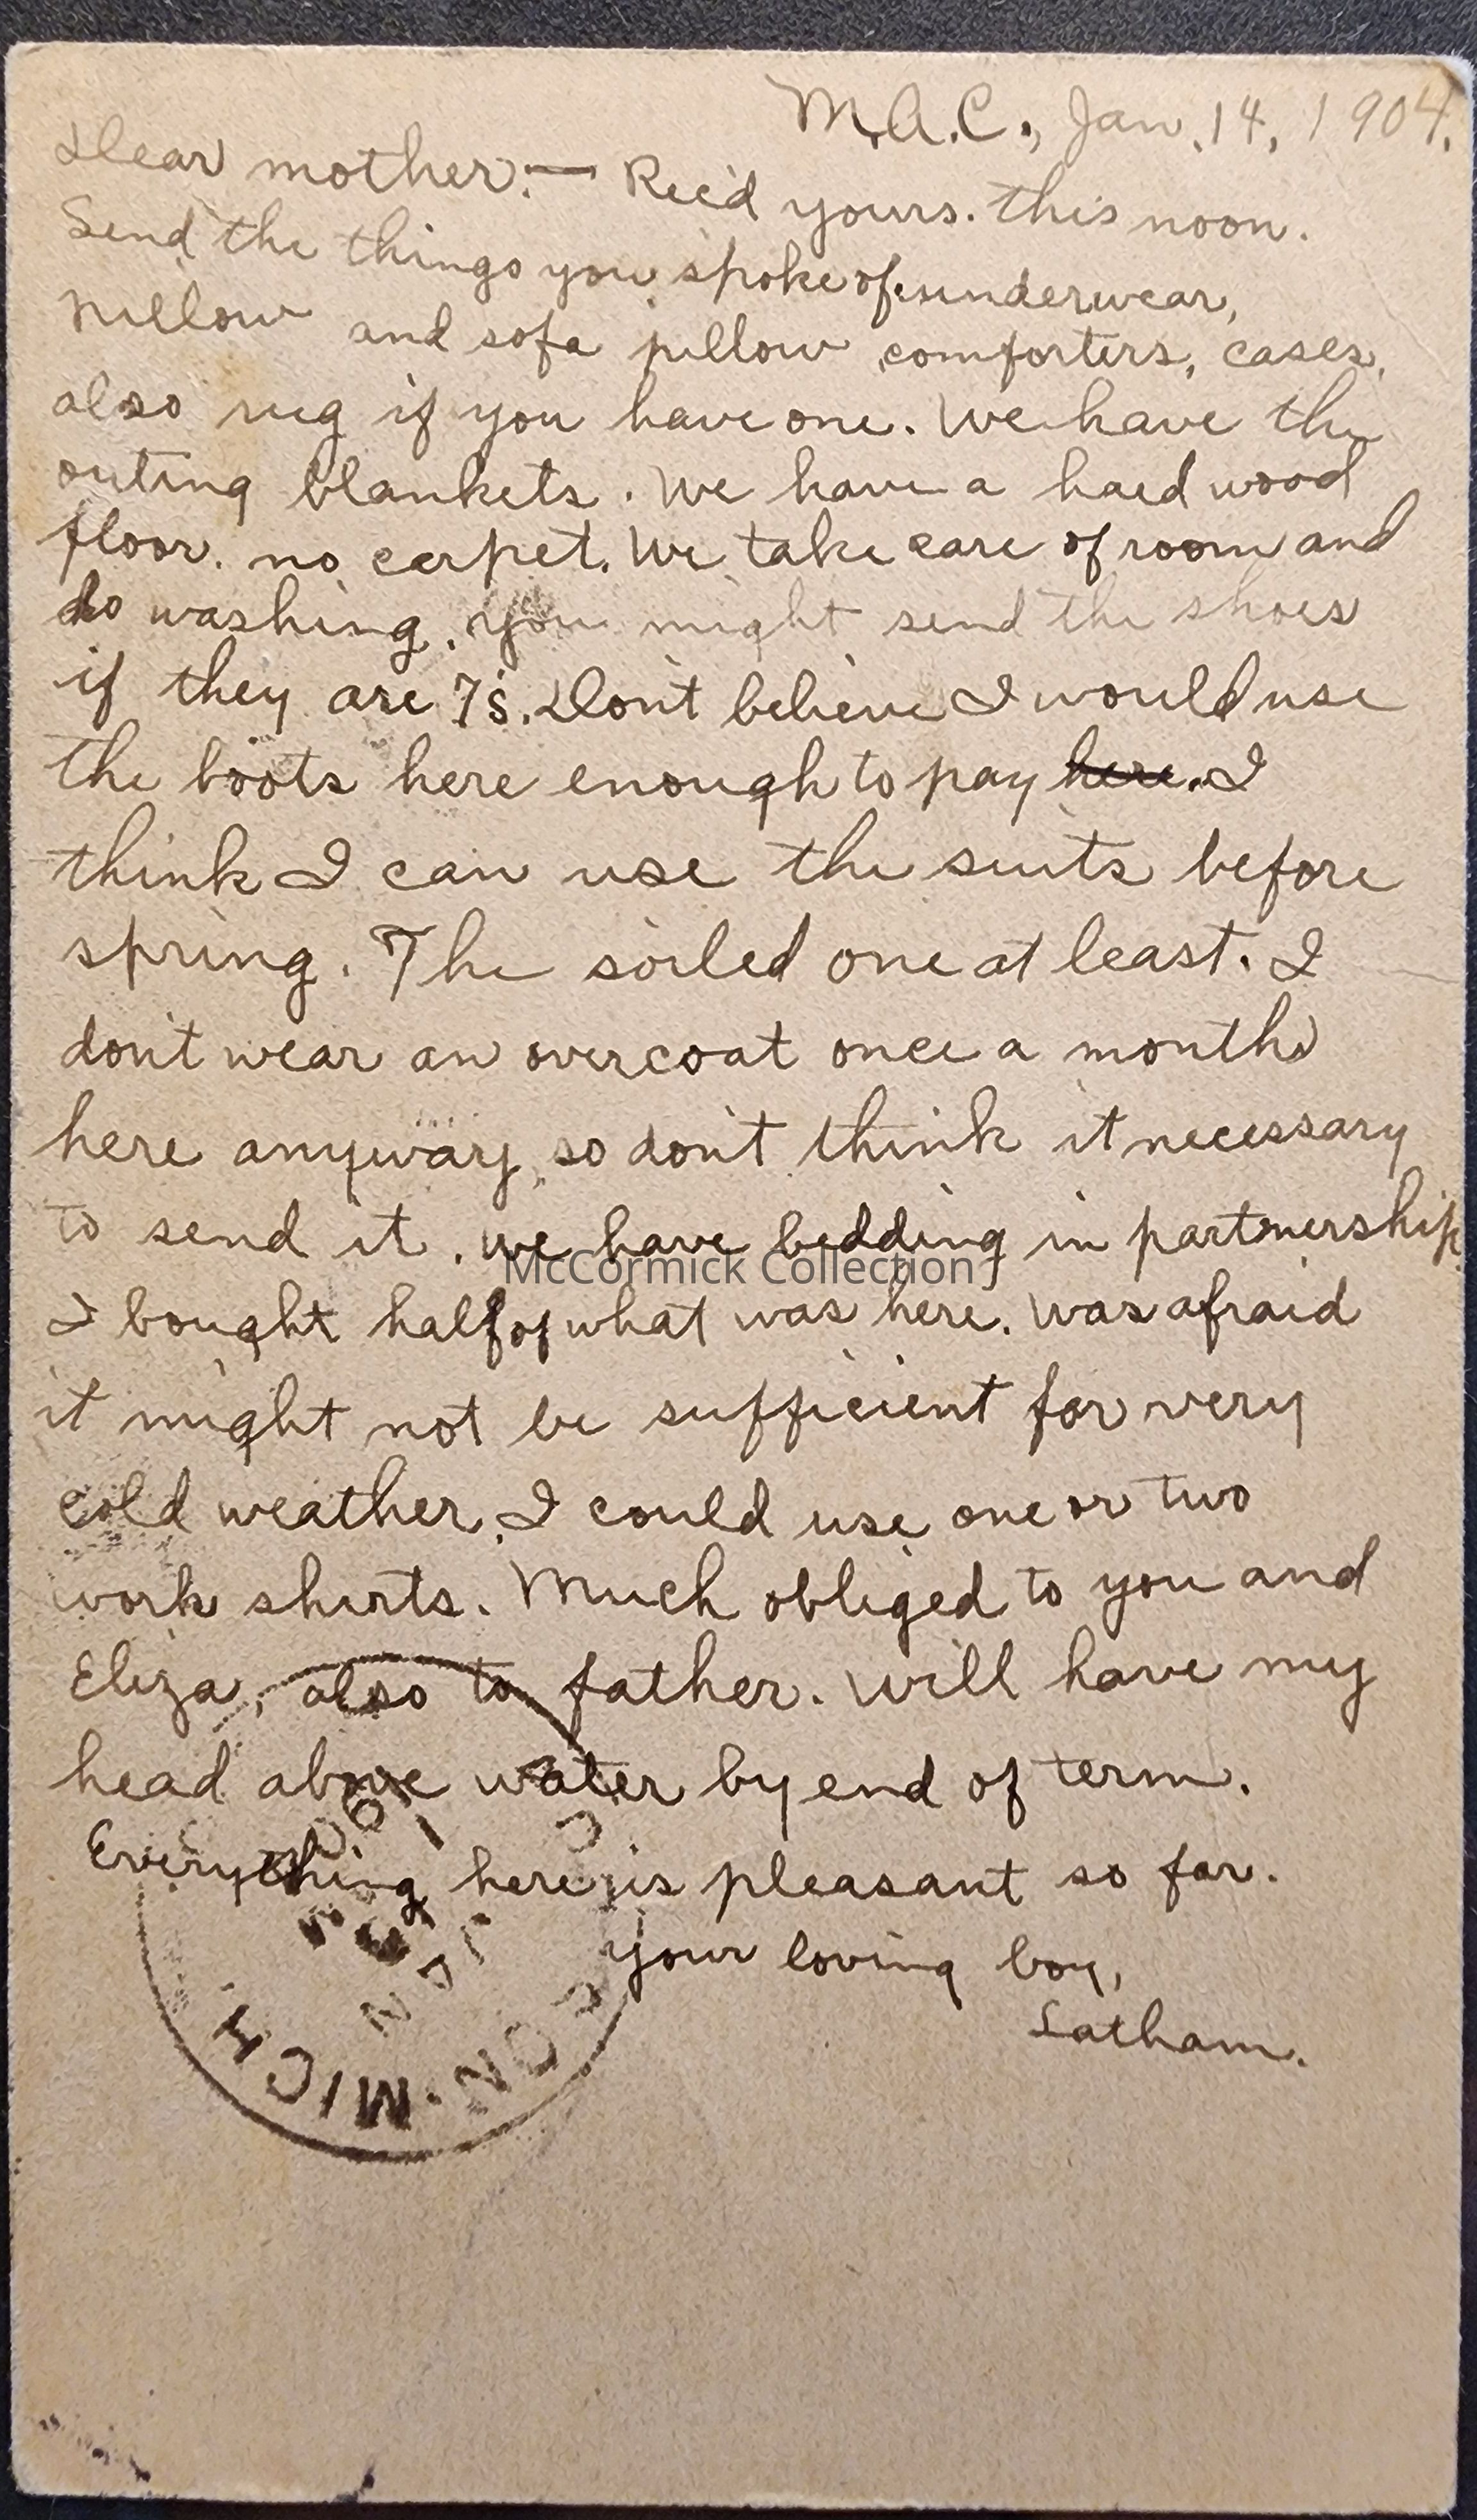 M.A.C., Jan. 14, 1904.
Dear mother:— Rec'd yours this noon.
Send the things you spoke of, underwear,
pillow and sofa pillow comforters, cases,
also rug if you have one. We have the
outing blankets. We have a hard wood
floor. no carpet. We take care of room and
do washing. You might send the shoes
if they are 7s. Don't believe I would use
the boots here enough to pay here. I
think I can use the suits before
spring. The soiled one at least. I
don't wear an overcoat once a month
here anyway, so don't think it necessary
to send it. We have bedding in partnership.
McCormick Collection
I bought half of what was here. Was afraid
it might not be sufficient for very
cold weather. I could use one or two
work shirts. Much obliged to you and
Eliza, also to father. Will have my
head above water by end of term.
Everything here is pleasant so far.
Your loving boy,
Latham.
JAN
ON. MICH.